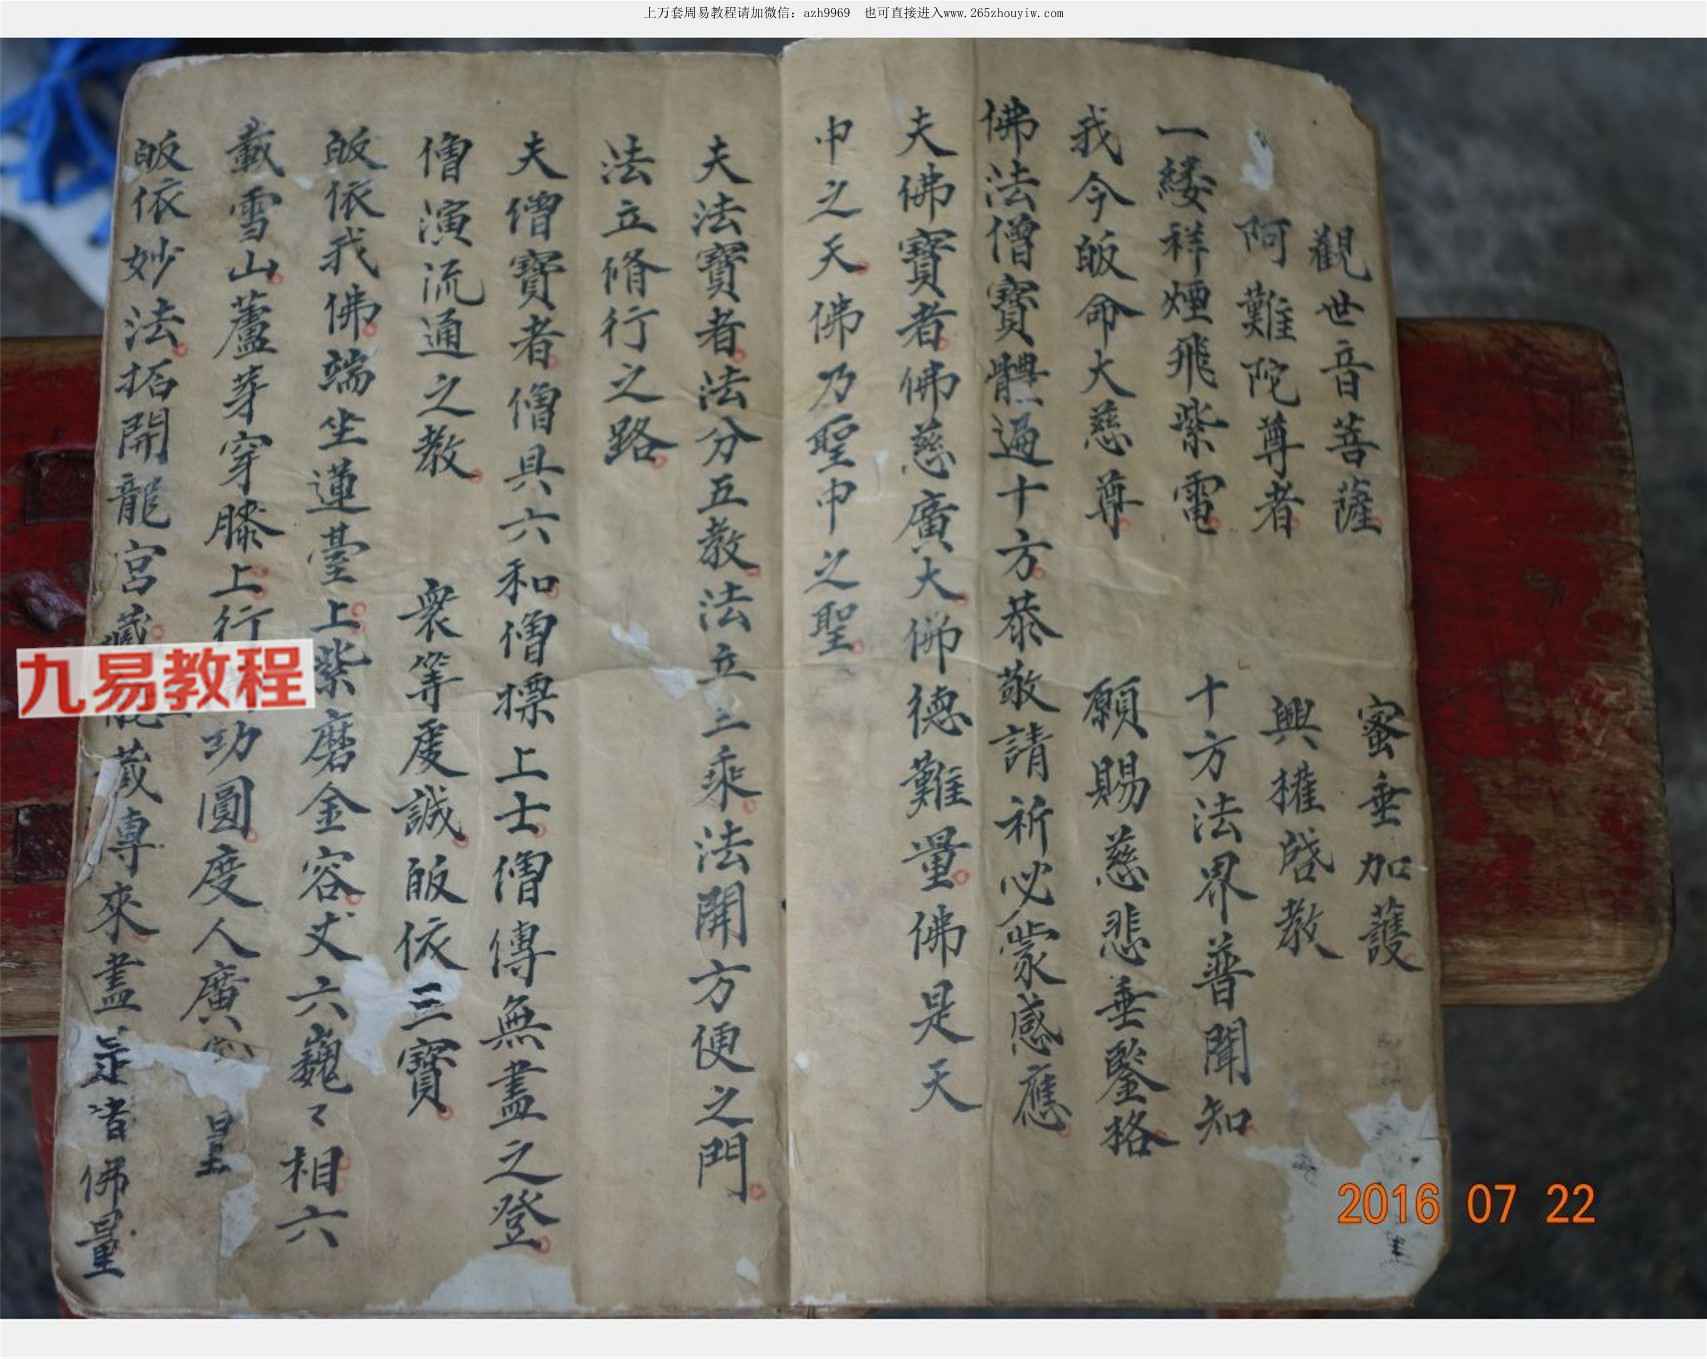 上万套周易教程请加微信：azh9969 也可直接进入www.265zhouyiw.com
觀世音菩薩 蜜垂加護
阿難陀尊者 興權啓教
一縷祥煙飛紫電 十方法界普聞知
我今皈命大慈尊 願賜慈悲垂鑒格
佛法僧寶體遍十方恭敬請祈必蒙感應
夫佛寶者佛慈廣大佛德難量佛是天
中之天佛乃聖中之聖
夫法寶者法分五教法立三乘法開方便之門
法立脩行之路
夫僧寶者僧具六和僧標上士僧傳無盡之登
僧演流通之教 衆等虔誠皈依三寶
皈依我佛端坐蓮臺上紫磨金容丈六巍々相六
載雪山蘆芽穿膝上行功圓度人廣
皈依妙法拓開龍宮藏龍藏專來盡是諸佛量
九易教程
2016 07 22